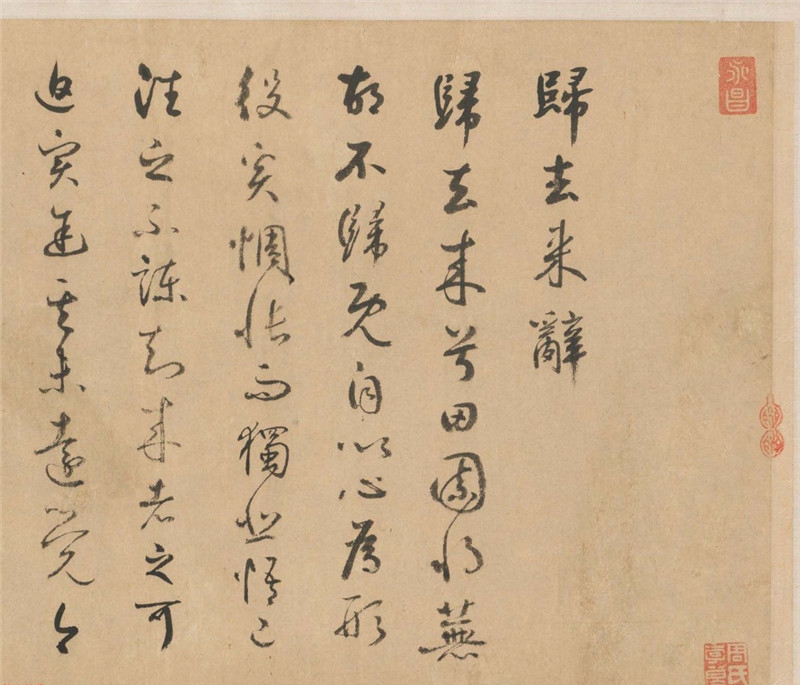 永昌
歸去来辭
歸去来兮田園將蕪
胡不歸既自以心為形
役奚惆悵而獨悲悟已
往之不諫知来者之可
追寔迷途其未遠覺今